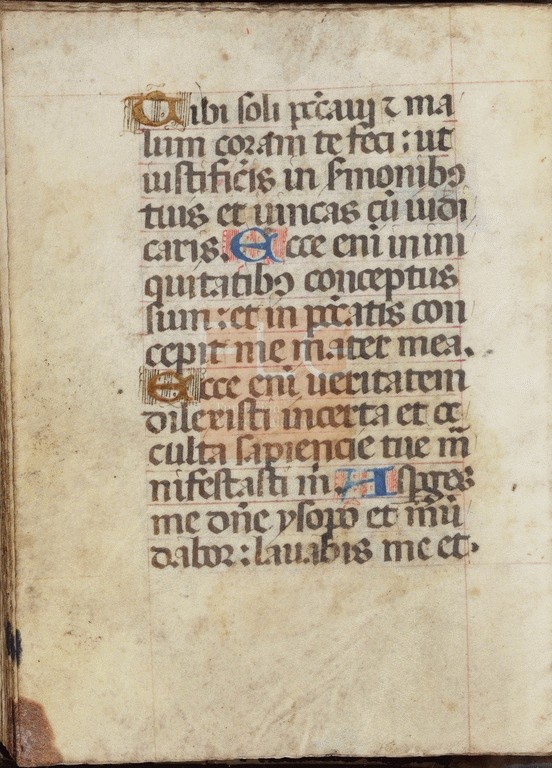 Tibi soli pc̄caui ⁊ ma
lum coram te feci : ut
iustific̄is in s̄monibꝯ
tuis et uincas cū iudi
caris. Ecce eni̅ in ini
quitatibꝯ conceptus
sum : et in pc̄catis con
cepit me mater mea.
Ecce eni̅ ueritatem
dilexisti incerta et oc
culta sapiencie tue m̄
nifestasti m̄. Asp̱ges
me dn̄e ysopo et mūn
dabor : lauabis me et